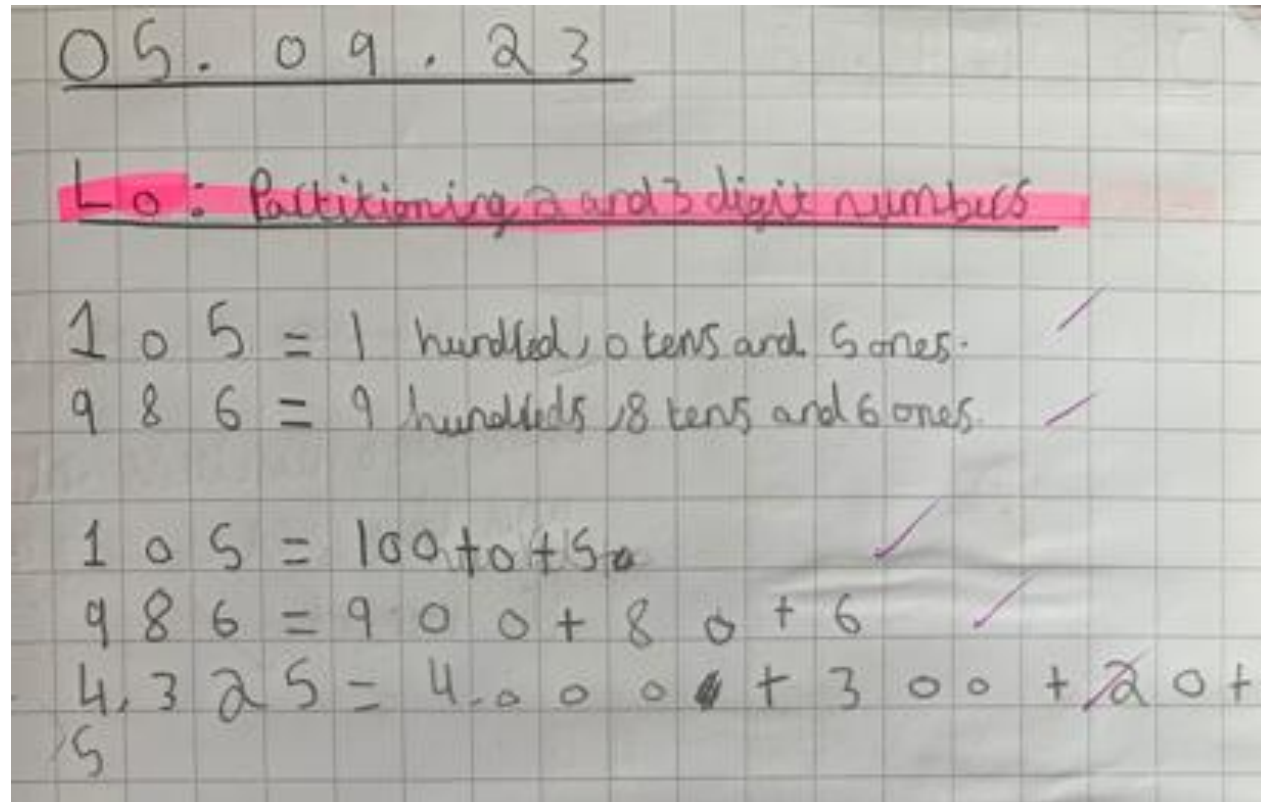 05.09.23
Lo: Partitioning 2 and 3 digit numbers
105 = 1 hundred, 0 tens and 5 ones.
986 = 9 hundreds, 8 tens and 6 ones.
105 = 100+0+5
986 = 900+80+6
4,325 = 4,000 + 300 + 20 +
5